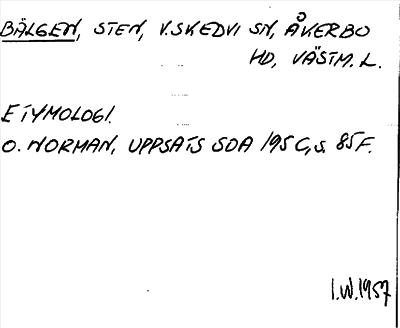 BÄLGEN, STEN, V. SKEDVI SN, ÅKERBO
HD, VÄSTM. L.
ETYMOLOGI.
O. NORMAN, UPPSATS SOA 195 C, s. 85 F.
I.W. 1957